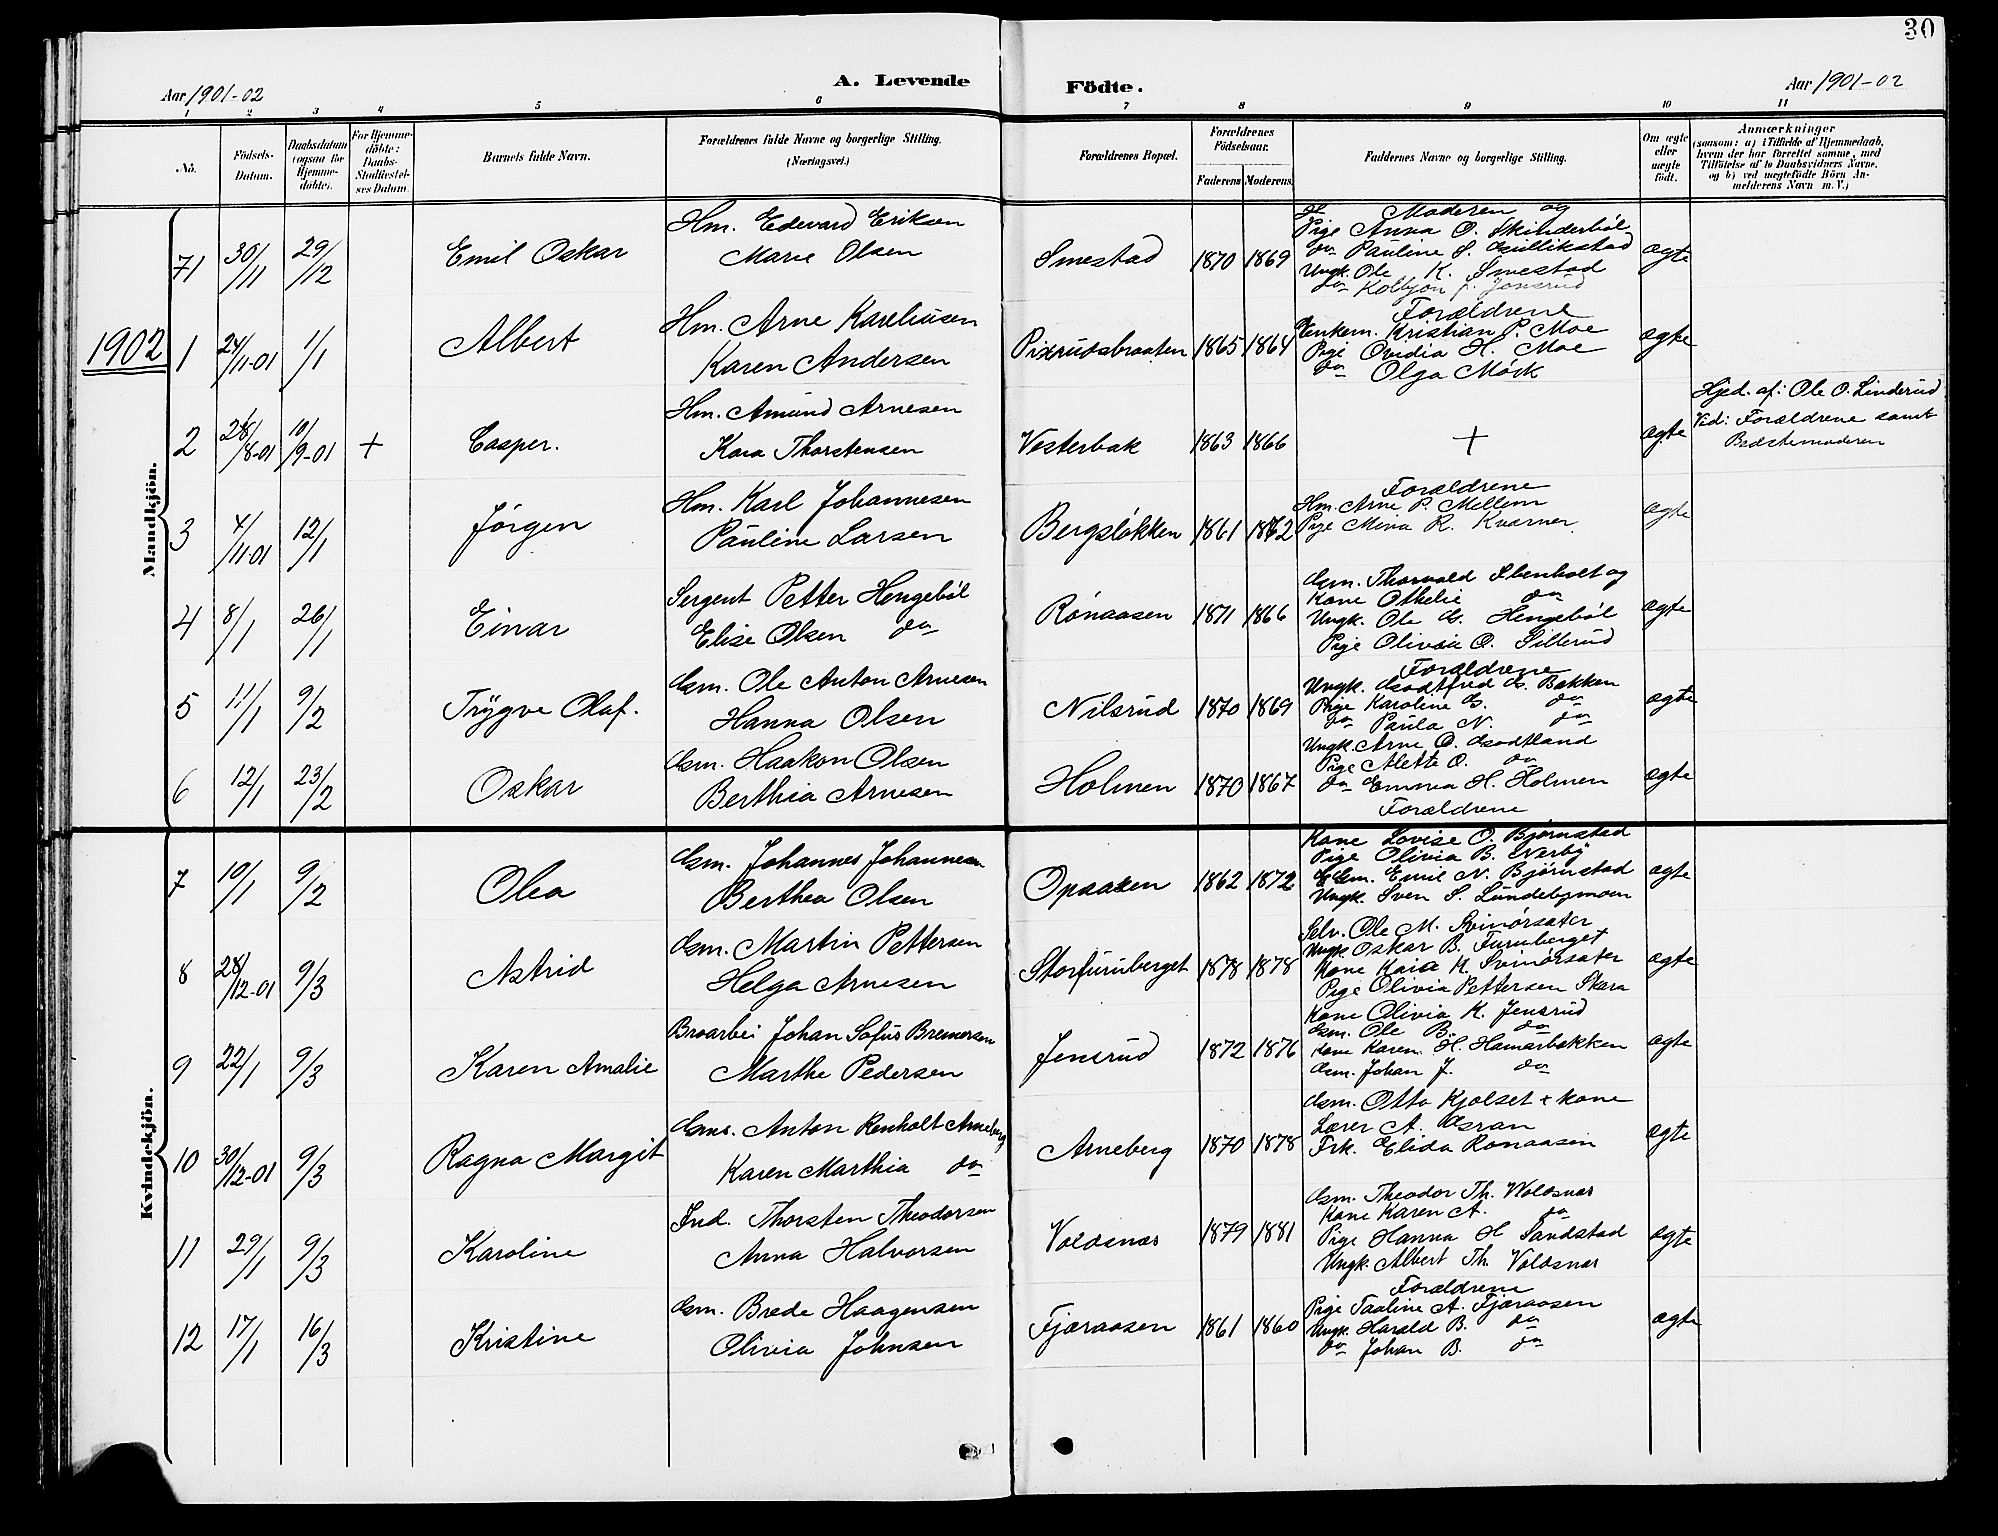 30
Aar 1901-02
A. Levende
Födte.
Aar 1901-02
1 2 3 4 5 6 7 8 9 10 11
No.
Födsels-Datum.
Daabsdatum (ogsaa for Hjemmedöbte).
For Hjemmedöbte: Daabs-Stadfæstelses Datum.
Barnets fulde Navn.
Forældrenes fulde Navne og borgerlige Stilling. (Næringsvei.)
Forældrenes Bopæl.
Forældrenes Födselsaar.
Faderens Moderens
Faddernes Navne og borgerlige Stilling.
Om ægte eller uægte födt.
Anmærkninger
(saasom: a) i Tilfælde af Hjemmedaab,
hvem der har forrettet samme, med
Tilföielse af to Daabsvidners Navne,
og b) ved uægtefödte Börn An-
melderens Navn m. V.)
Mandkjön.
71 30/11 29/12 Emil Oskar
Hm. Edevard Eriksen
Marie Olsen
Smestad 1870 1869
Moderen og
Pige Anna O. Skinderböl
do Pauline S. Gullikstad
Ungk. Ole K. Smestad
do Kolbjøn J. Jensrud
ægte
1902
1 24/11-01 1/1 Albert
Hm. Arne Karelius​en
Karen Andersen
Pixrudsbraaten 1865 1864
Forældrene
Enkem. Kristian P. Moe
Pige Ovedia H. Moe
do Olga Mörk
ægte
2 26/8-01 10/9-01 + Casper.
Hm. Amund Arnesen
Kara Thorstensen
Vesterbak 1863 1866
+
ægte
Hjed. af: Ole O. Linderud
Ved: Forældrene samt
Bedstemoderen
3 4/11-01 12/1 Jörgen
Hm. Karl Johannesen
Pauline Larsen
Bergsløkken 1861 1862
Forældrene
Hm. Arne P. Mellem
Pige Mina R. Kværner
ægte
4 8/1 26/1 Einar
Sergent Petter Hengeböl
Elise Olsen do
Rönaasen 1871 1866
Gsm. Thorvald Ibenholt og
Kone Othelie do
Ungk. Ole G. Hengeböl
Pige Olivia O. Sillerud
ægte
5 11/1 9/2 Trygve Olaf.
Gsm. Ole Anton Arnesen
Hanna Olsen
Nilsrud 1870 1869
Forældrene
Ungk. Godtfred G. Bakken
Pige Karoline G. do
do Paula N. do
ægte
6 12/1 23/2 Oskar
Gsm. Haakon Olsen
Berthia Arnesen
Holmen 1870 1867
Ungk. Arne O. Godtland
Pige Alette O. do
do Emma H. Holmen
Forældrene
ægte
Kvindekjön.
7 10/1 9/2 Olea
Gsm. Johannes Johannesen
Berthea Olsen
Opaasen 1862 1872
Kone Lovise O. Björnstad
Pige Olivia B. Nerby
Gsm. Emil N. Björnstad
Ungk. Sven S. Lundebymoen
ægte
8 28/12-01 9/3 Astrid
Gsm. Martin Pettersen
Helga Arnesen
Storfuruberget 1878 1878
Selv. Ole M. Svinörsæter
Ungk Oskar B. Furuberget
Kone Kaia M. Svinörsæter
Pige Olivia Pettersen Skara
ægte
9 22/1 9/3 Karen Amalie
Broarbei Johan Sofus Bremersen
Marthe Pedersen
Jensrud 1872 1876
Kone Olivia K. Jensrud
Gsm. Ole B. do
Kone Karen H. Hamarbakken
Gsm. Johan J. do
ægte
10 30/12-01 9/3 Ragna Margit
Gsm. Anton Renholt Arneberg
Karen Marthia do
Arneberg 1870 1878
Gsm. Otto Kjolset + kone
Lærer A. Æsran
Frk. Elida Rönaasen
ægte
11 29/1 9/3 Karoline
Ind. Thorsten Theodorsen
Anna Halvorsen
Voldsnæs 1879 1881
Gsm. Theodor Th. Woldsnæs
Kone Karen A. do
Pige Hanna H Sandstad
Ungk. Albert Th. Voldsnæs
ægte
12 17/1 16/3 Kristine
Gsm. Brede Haagensen
Olivia Johnsen
Fjæraasen 1861 1860
Forældrene
Pige Taaline A. Fjæraasen
Ungk. Harald B. do
do Johan B. do
ægte